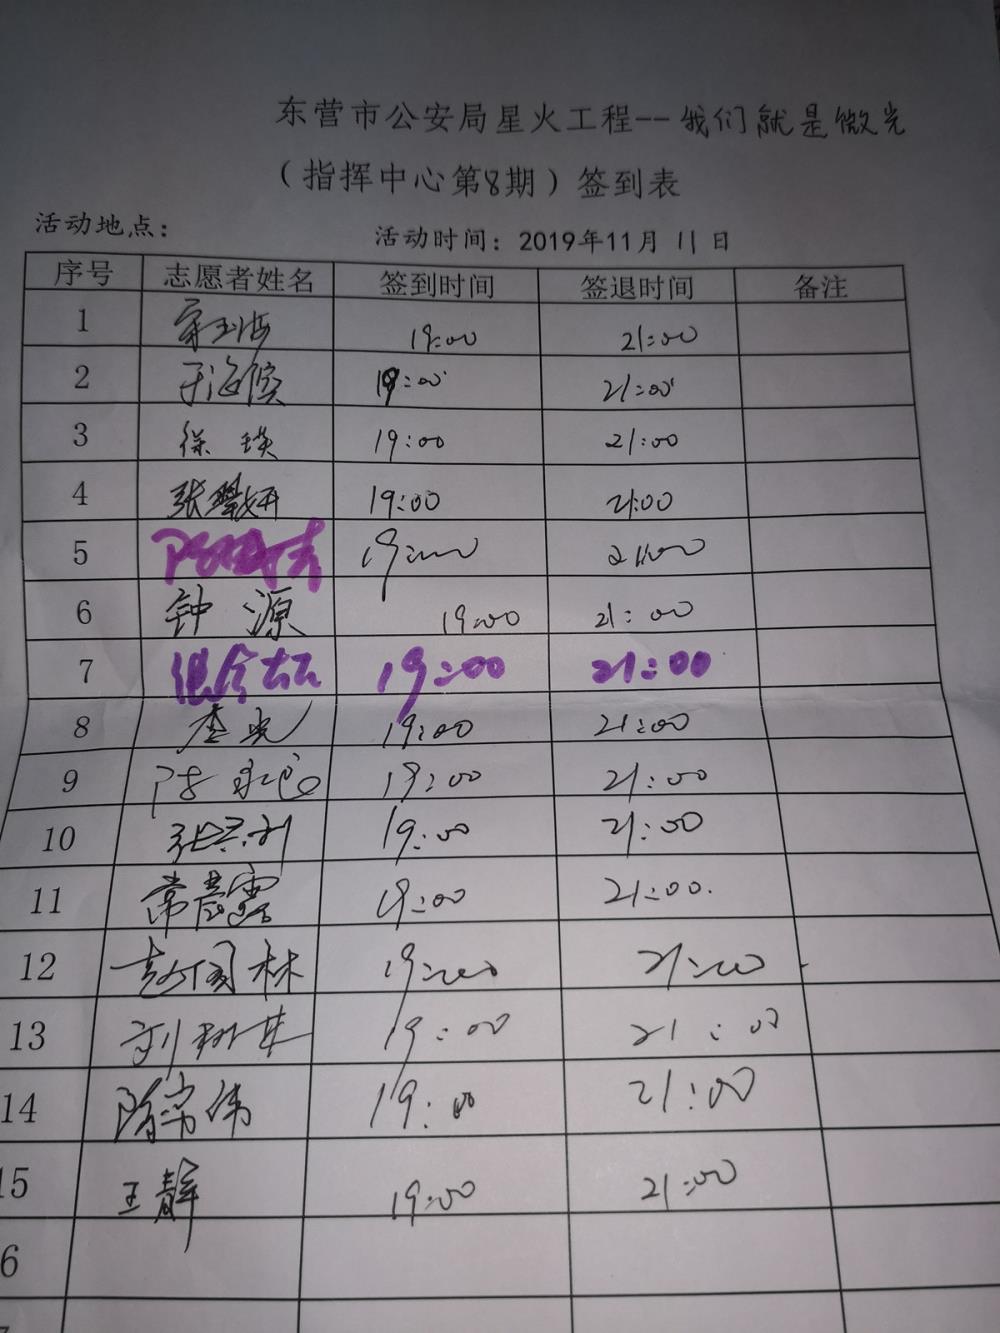 东营市公安局星火工程--我们就是微光
（指挥中心第8期）签到表
活动地点： 活动时间：2019年11月 11 日
序号 志愿者姓名 签到时间 签退时间 备注
1 19:00 21:00
2 于海滨 19:00 21:00
3 徐瑛 19:00 21:00
4 张 妍 19:00 21:00
5 19:00 21:00
6 钟源 19:00 21:00
7 19:00 21:00
8 19:00 21:00
9 陈 19:00 21:00
10 张 利 19:00 21:00
11 常晨露 19:00 21:00
12 赵国林 19:00 21:00
13 刘树 19:00 21:00
14 伟 19:00 21:00
15 王静 19:00 21:00
6